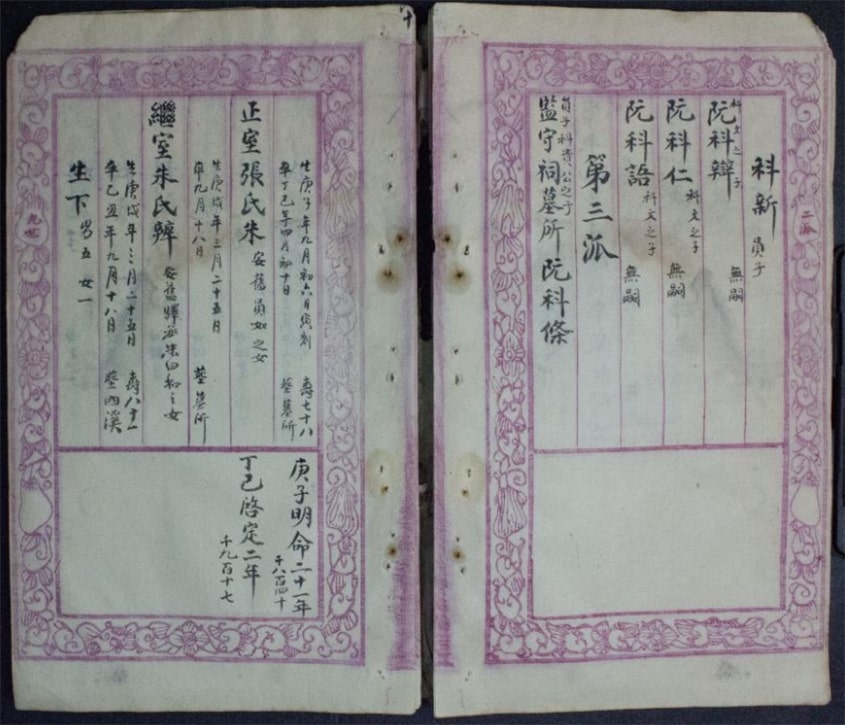 二派
科新 員子
阮科辨 科文之子 無嗣
阮科仁 科文之子 無嗣
阮科語 科文之子 無嗣
第三派
員子科貴公之子
監守祠墓所阮科條
生庚子年九月初六月 壽七十八
卒丁巳年四月初十日 葬墓所
正室張氏朱 安舊員如之女
生庚戌年三月二十五日
卒九月十八日 葬墓所
繼室朱氏 安舊 朱 之女
生庚戌年三月二十五日 壽八十一
卒己丑年九月十八日 葬內溪
生下 男五 女一
九世
庚子明命二十一年
千八百四十
丁巳啓定二年
千九百十七